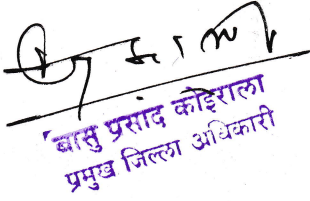 बासु प्रसाद कोइराला
प्रमुख जिल्ला अधिकारी